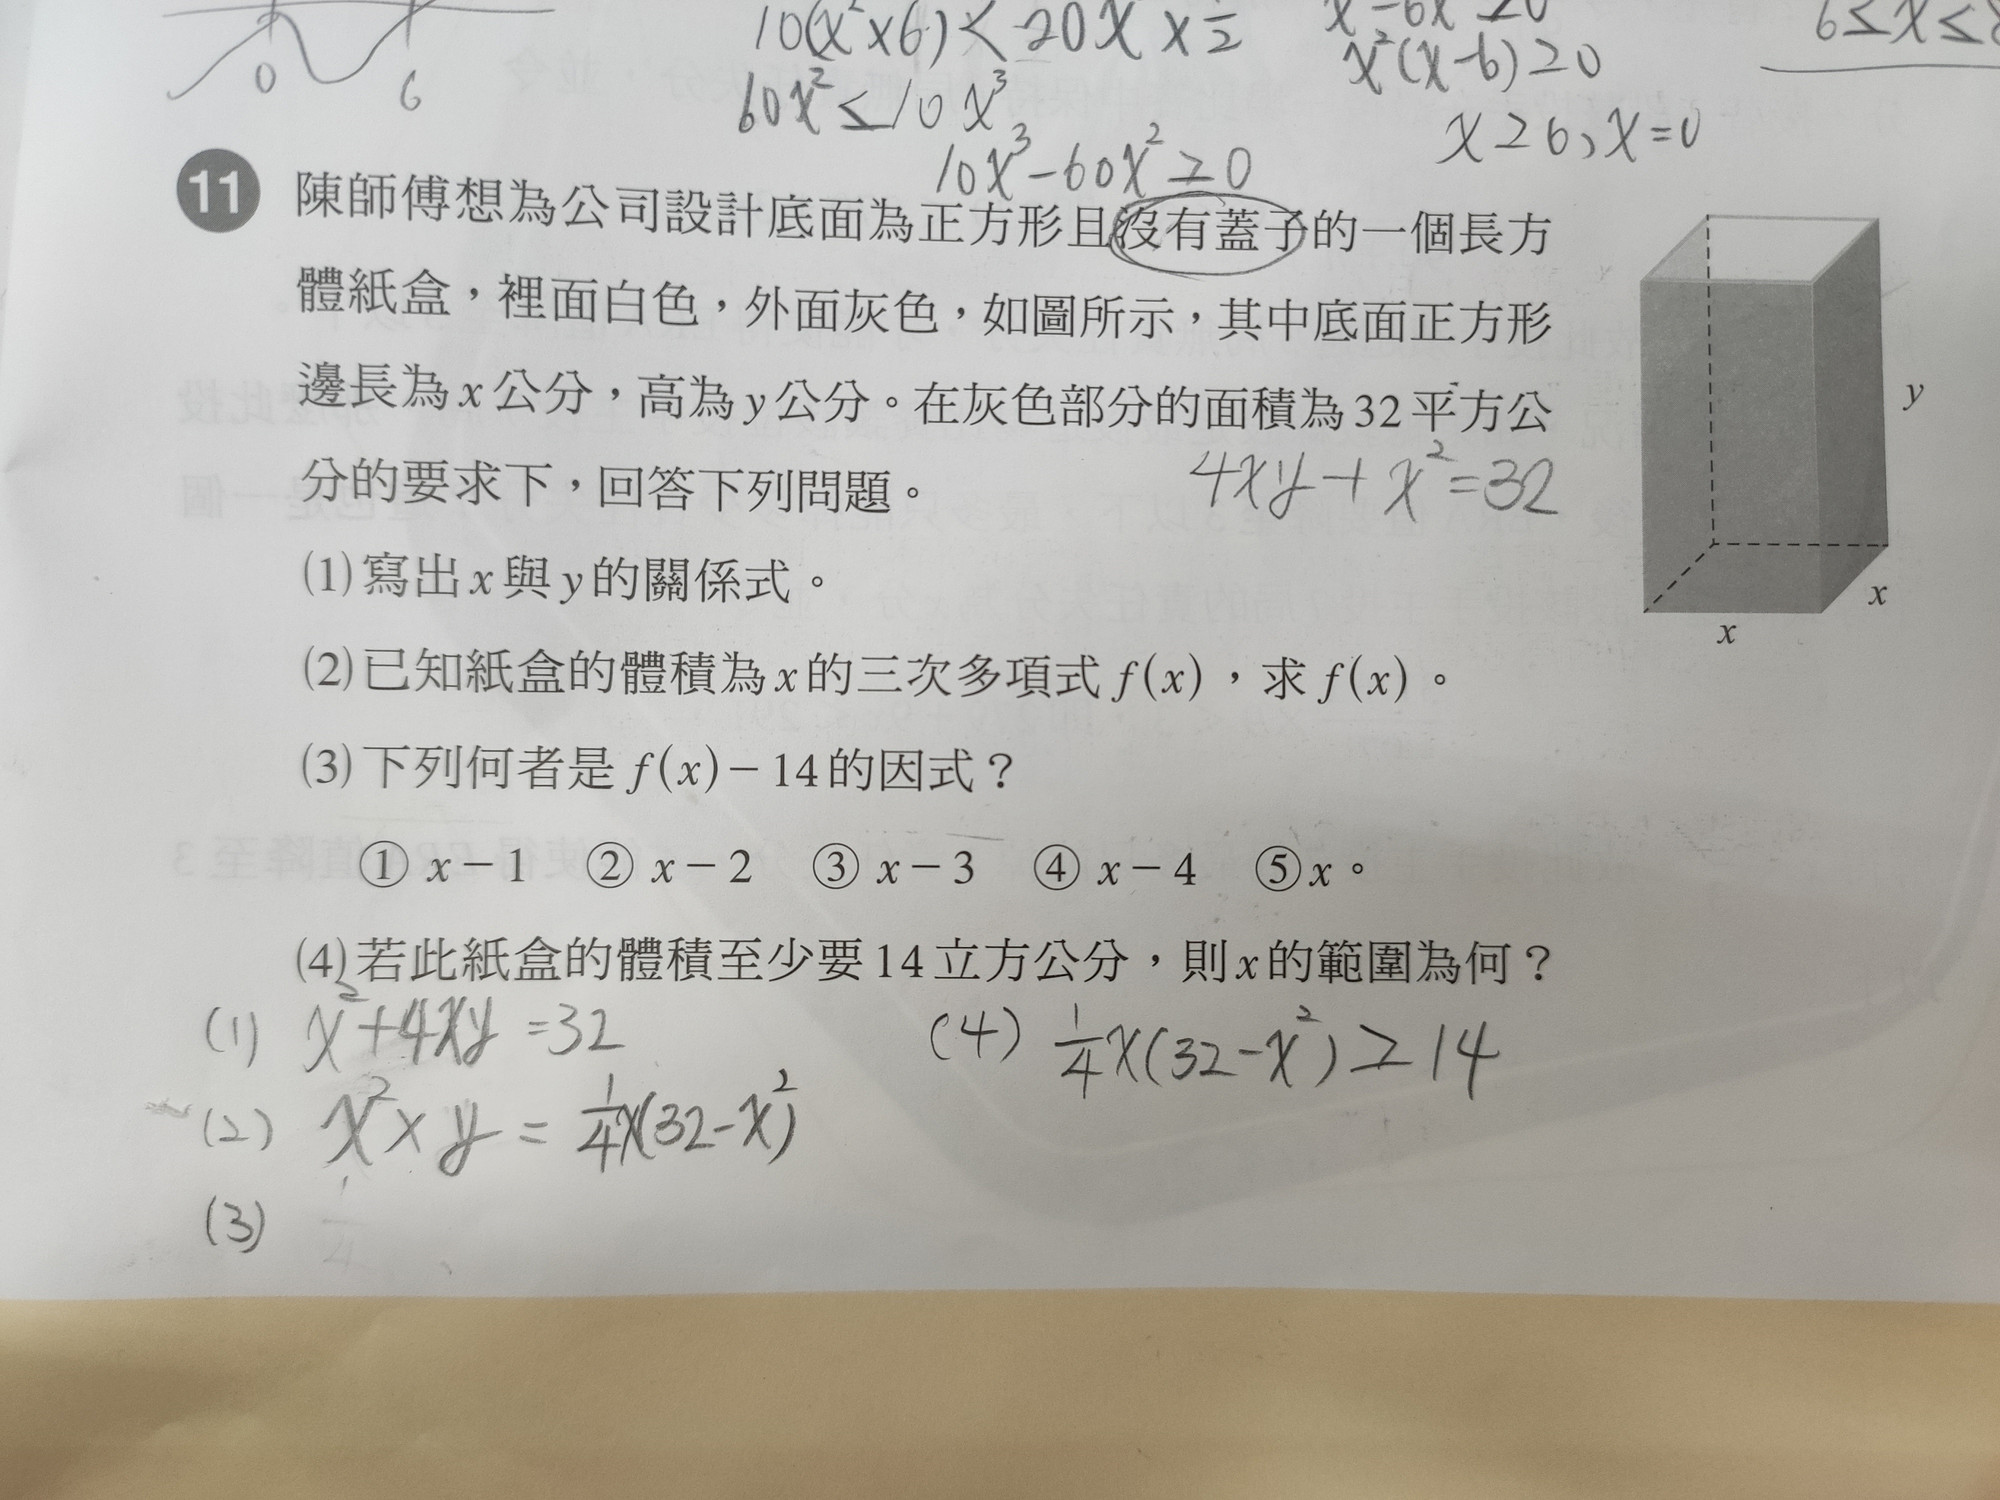 0
6
10(x²×6) < 20x x
60x² ≤ 10x³
10x³-60x² ≥ 0
x²(x-6) ≥ 0
x ≥ 6, x=0
6≤x≤8
11 陳師傅想為公司設計底面為正方形且沒有蓋子的一個長方
體紙盒，裡面白色，外面灰色，如圖所示，其中底面正方形
邊長為x公分，高為y公分。在灰色部分的面積為32平方公
分的要求下，回答下列問題。
4xy+x²=32
y
x
x
(1)寫出x與y的關係式。
(2)已知紙盒的體積為x的三次多項式f(x)，求f(x)。
(3)下列何者是f(x)-14的因式？
① x-1 ② x-2 ③ x-3 ④ x-4 ⑤x。
(4)若此紙盒的體積至少要14立方公分，則x的範圍為何？
(1) x²+4xy=32
(2) x²×y = 1/4x(32-x²)
(3)
(4) 1/4x(32-x²) ≥ 14